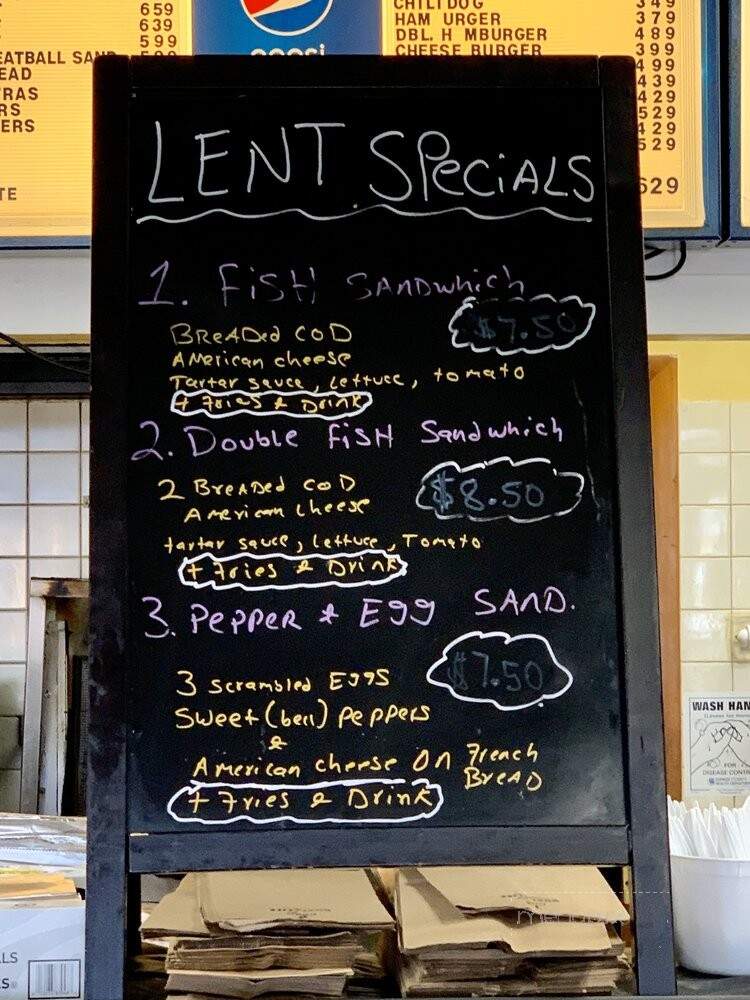 659
639
599
EATBALL SAND
EAD
RAS
RS
ERS
TE
pepsi
CHILI DOG 349
HAM URGER 379
DBL. H MBURGER 489
CHEESE BURGER 399
499
439
429
529
429
529
629
LENT SPeciALS
1. FiSH SANDwhich
$7.50
BReADed COD
AMerican cheese
Tartar sauce, Lettuce, tomato
+ Fries & Drink
2. Double FiSH Sandwhich
2 BreADed COD
$8.50
AMerican cheese
tartar sauce, lettuce, Tomato
+ Fries & Drink
3. PePPeR & Egg SAND.
$7.50
3 scrambled Eggs
Sweet (bell) PePPeRs
&
AMerican cheese On French
BreAD
+ Fries & Drink
WASH HAN
FOR
DISEASE CONT
LS
S